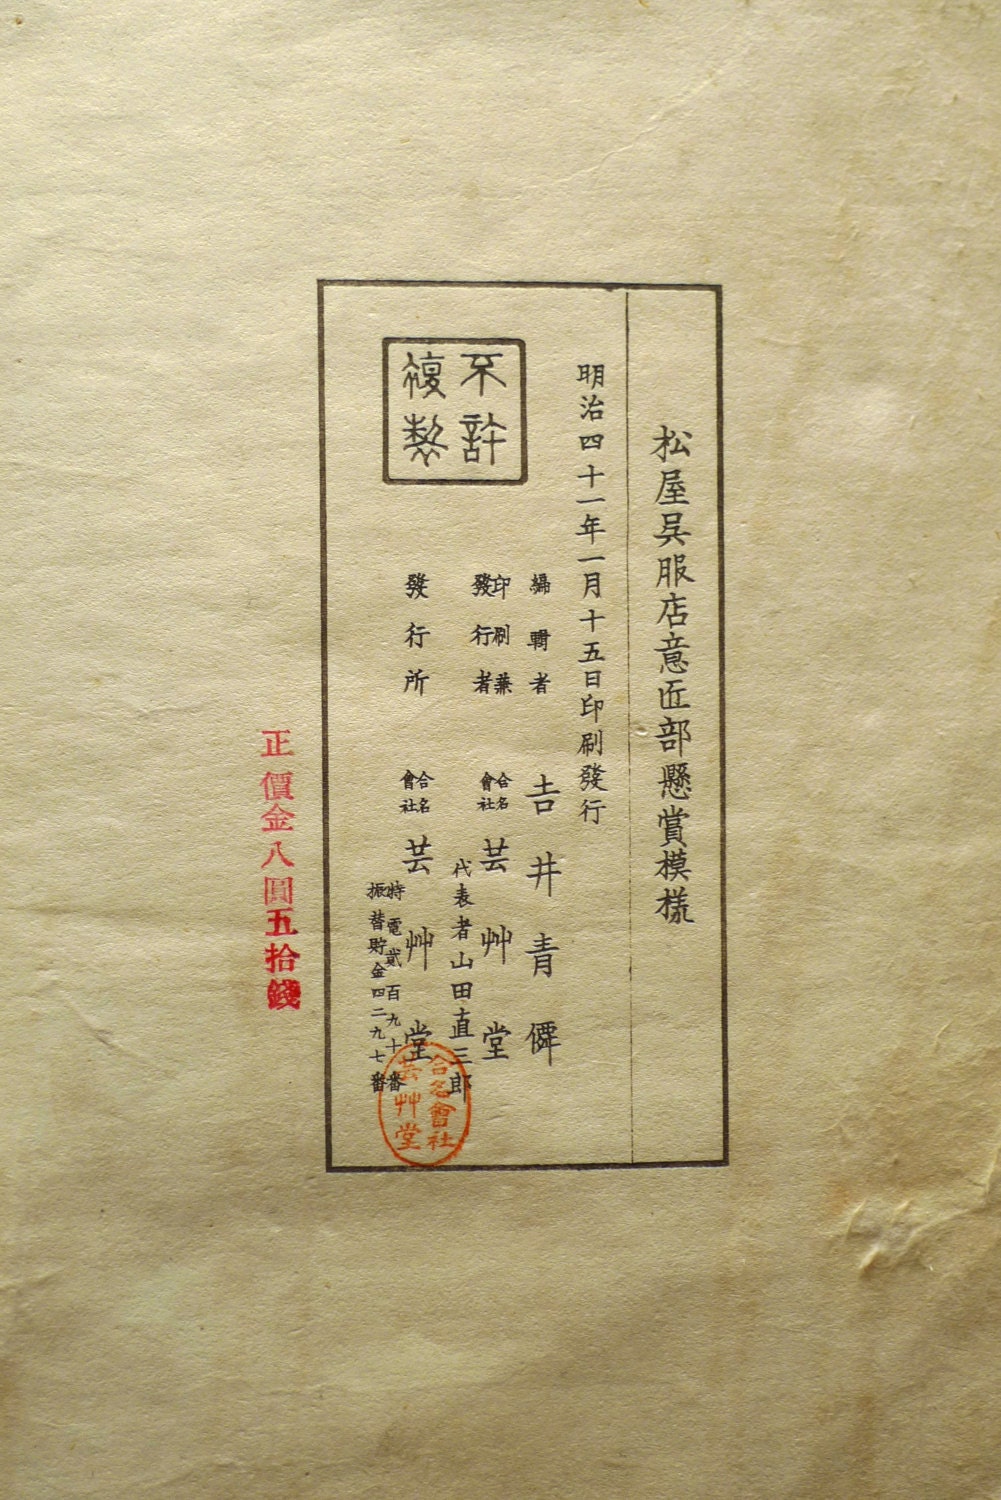 松屋呉服店意匠部懸賞模様
明治四十一年一月十五日印刷發行
編輯者 吉井青僲
印刷兼
發行者
合名
會社
芸艸堂
代表者山田直三郎
發行所
合名
會社
芸艸堂
特電貳百九十番
振替貯金四二九七番
不許
複製
合名會社
芸艸堂
正價金八圓五拾錢